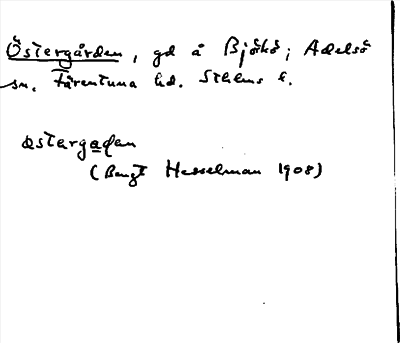 Östergården, gd å Björkö; Adelsö
sn. Färentuna hd. Sthlms l.
østergadan
(Bengt Hesselman 1908)